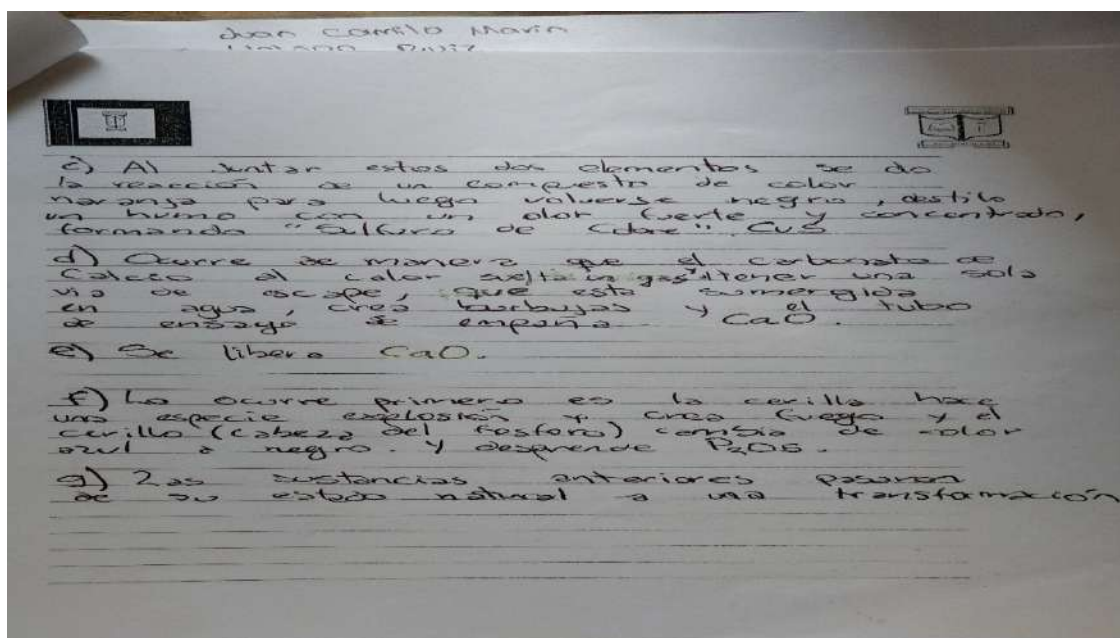 Juan Camilo Marin
c) Al Juntar estos dos elementos se da
la reacción de un compesto de color
naranja para luego volverse negro, destila
un humo con un olor fuerte y concentrado,
formando "Sulfuro de Cobre" CuS
d) Ocurre de manera que el carbonato de
Calcio al calor suelta un gas tener una sola
via de escape, que esta sumergida
en agua, crea burbujas y el tubo
de ensayo se empaña CaO.
e) Se libera CaO.
f) Lo ocurre primero es la cerilla hace
una especie explosión y crea fuego y el
cerillo (cabeza del fosforo) cambia de color
azul a negro. y desprende P2O5.
g) Las sustancias anteriores pasaron
de su estado natural a una transformación